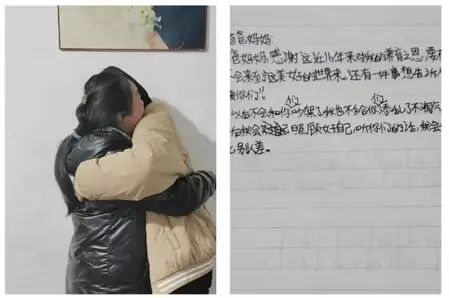 爸妈妈：
爸妈妈，感谢这近16年来对我的养育之恩，要不
会来到这美好的世界来。还有一件事想告诉
你们"。
以后不会和你们吵架了我也不会给你们添乱了不淘气
后我会照顾好自己，听你们的话，我会
别人差。